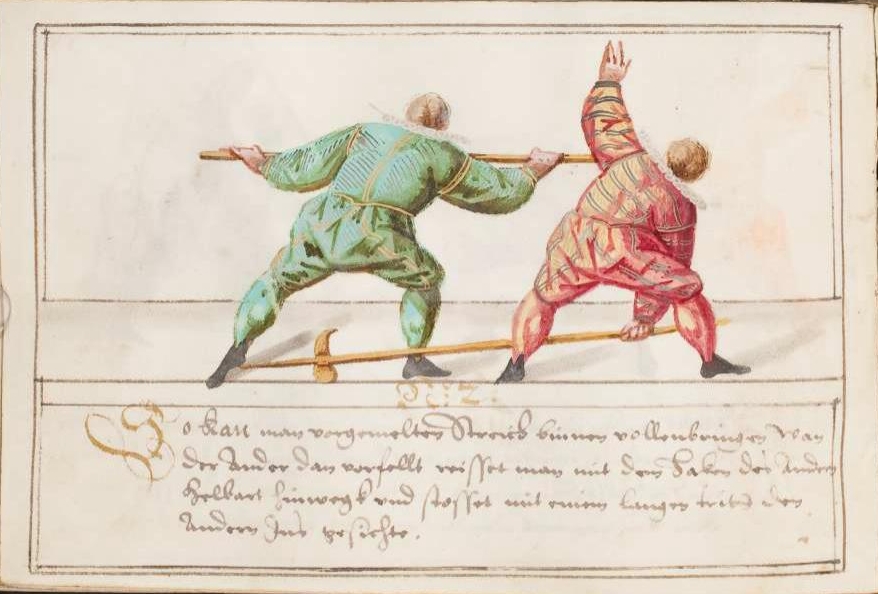 N: 2.
So Kan man vorgemelten Streich binnen vollenbringen Wan
der Ander dan verfellt reisset man mit dem Haken des Andern
Helbart hinwegk vnd stosset mit einem langen tritt den
Andern Ins gesichte.